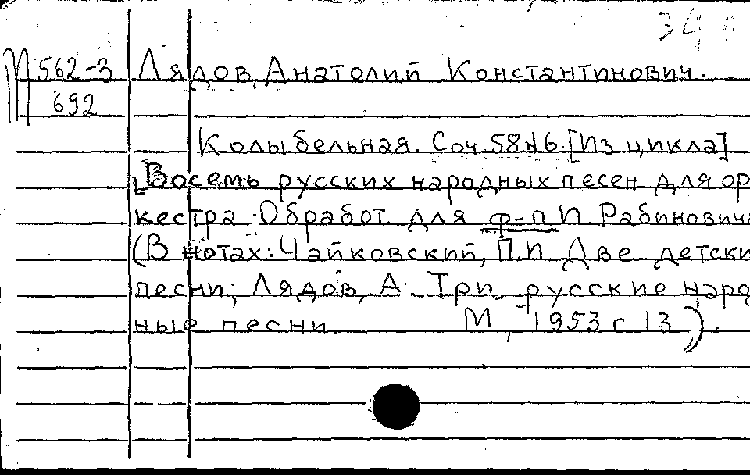 34
П562-3 Лядов, Анатолий Константинович.
692
Колыбельная. Соч. 58 №6. [Из цикла]
[Восемь русских народных песен для ор
кестра. Обработ. для ф-п И. Рабинович
(В нотах: Чайковский, П.И. Две детски
песни; Лядов, А. Три русские наро
ные песни. М., 1953 с 13).